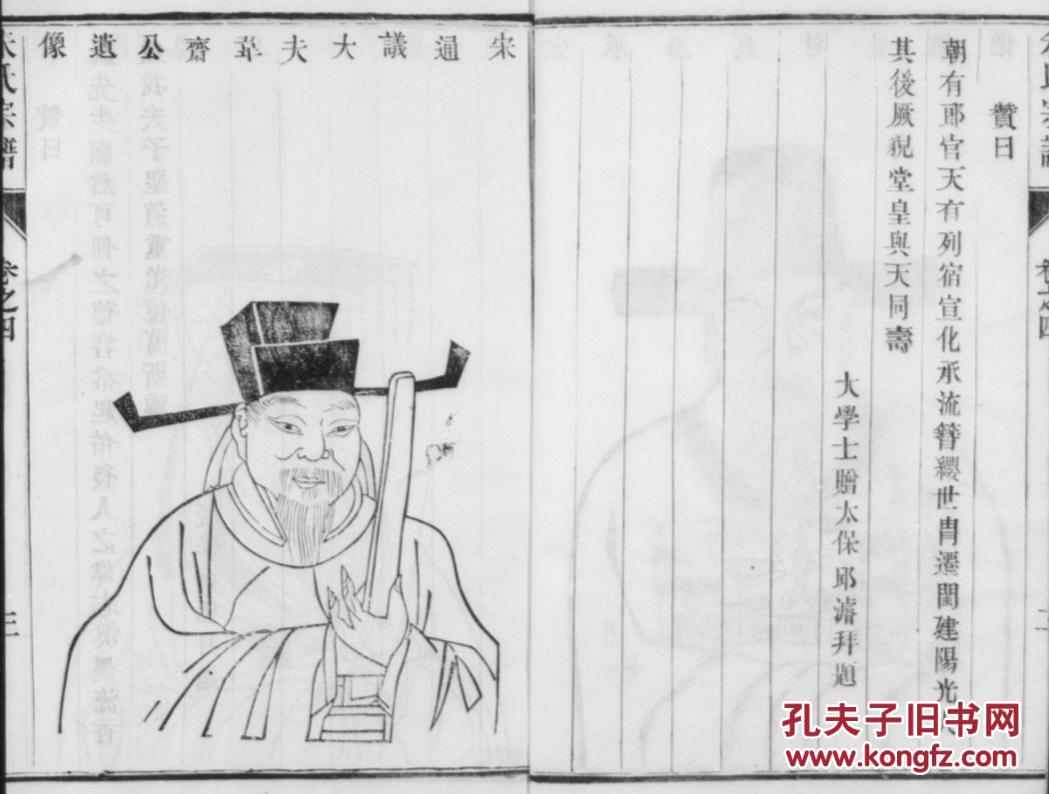 贊曰
朝有郎官天有列宿宣化承流簪纓世胄遷閩建陽光
其後厥貌堂皇與天同壽
大學士贈太保邱濬拜題
宋通議大夫韋齋公遺像
氏宗譜
卷之四
三
孔夫子旧书网
www.kongfz.com